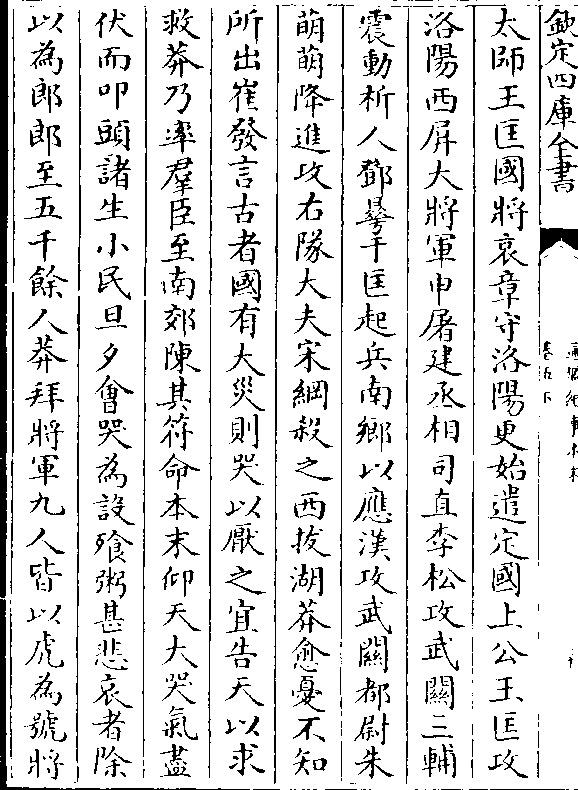 欽定四庫全書
卷五下
太師王匡國將哀章守洛陽更始遣定國上公王匡攻
洛陽西屏大將軍申屠建丞相司直李松攻武關三輔
震動析人鄧曅于匡起兵南鄉以應漢攻武關都尉朱
萌萌降進攻右隊大夫宋綱殺之西拔湖莽愈憂不知
所出崔發言古者國有大災則哭以厭之宜告天以求
救莽乃率羣臣至南郊陳其符命本末仰天大哭氣盡
伏而叩頭諸生小民旦夕會哭為設飱粥甚悲哀者除
以為郎郎至五千餘人莽拜將軍九人皆以虎為號將